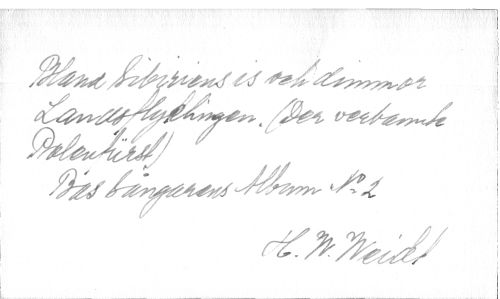 Bland Sibiriens is och dimmor
Landsflyktingen. (Der verbannte
Polenfürst)
Bas Sångarens Album No 2
H. W. Weidt